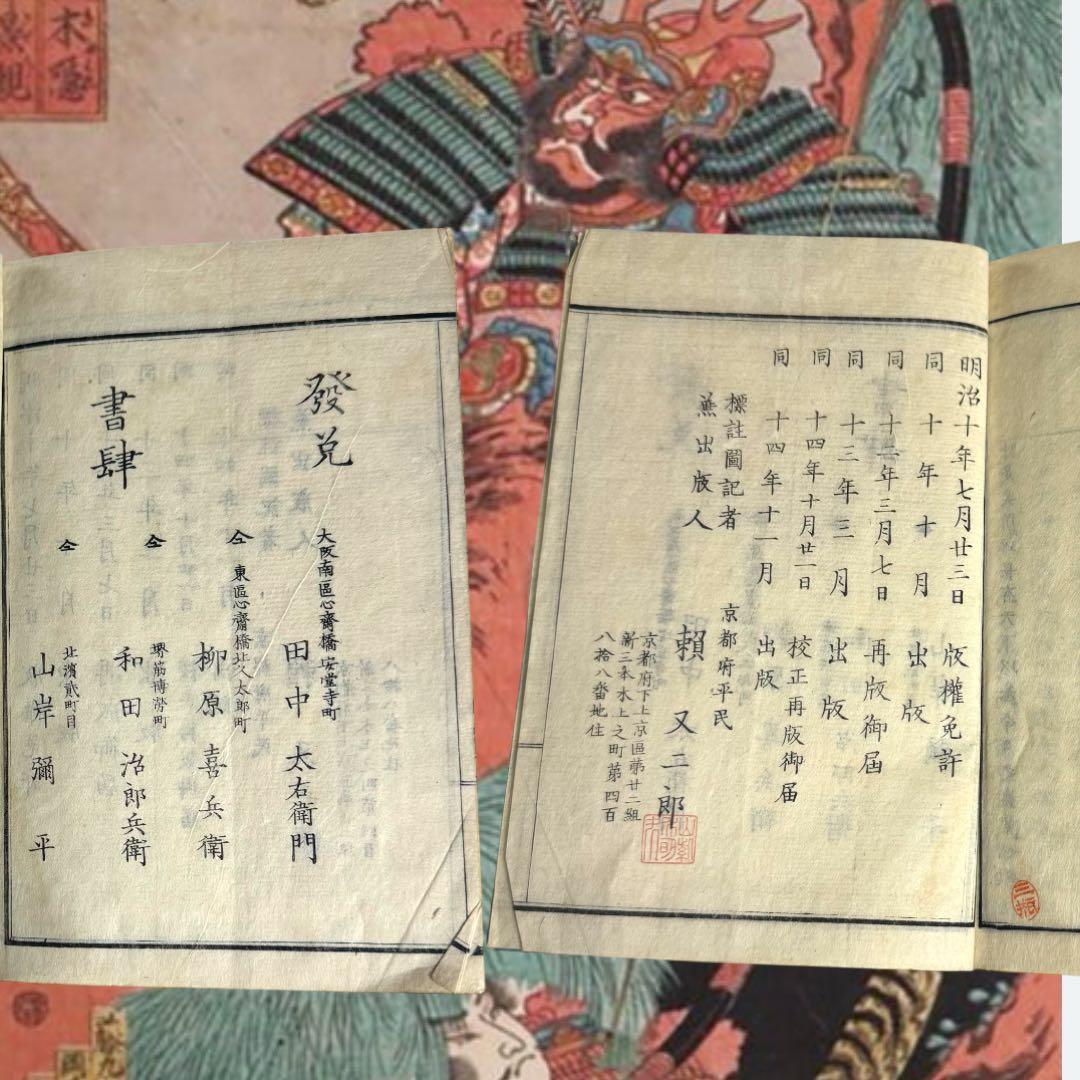 明治十年七月廿三日 版權免許
同 十年十月 出版
同 十二年三月七日 再版御届
同 十三年三月 出版
同 十四年十月廿一日 校正再版御届
同 十四年十一月 出版
標註圖記者
兼出版人
京都府平民
賴又二郎
京都府下上京區第廿二組
新三本木上之町第四百
八拾八番地住
發兌
書肆
大阪南區心齋橋安堂寺町
田中太右衛門
仝 東區心齋橋北久太郎町
柳原喜兵衛
仝 堺筋博勞町
和田治郎兵衛
仝 北濱貳町目
山岸彌平